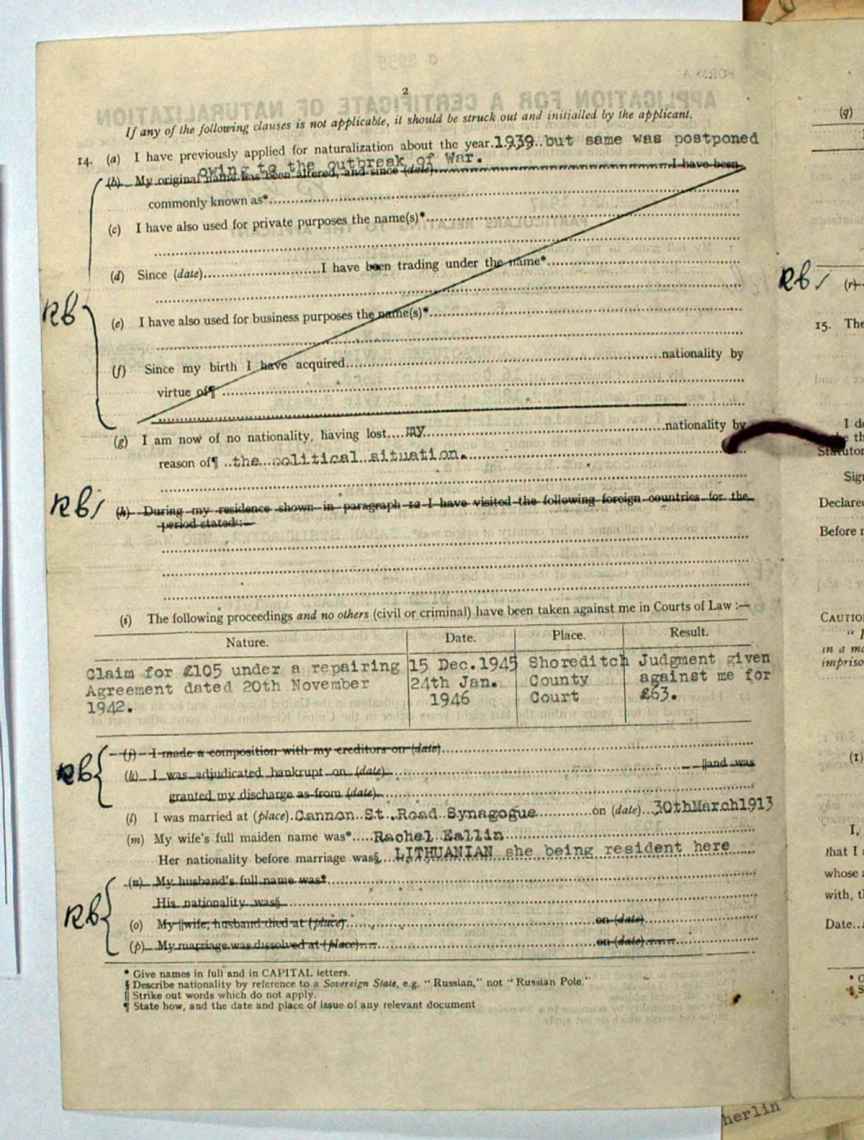 2
If any of the following clauses is not applicable, it should be struck out and initialled by the applicant.
14. (a) I have previously applied for naturalization about the year 1939..but same was postponed
owing to the outbreak of War.
(b) My original name was been altered, and since (date)..........I have been
commonly known as*
(c) I have also used for private purposes the name(s)*
(d) Since (date)..........I have been trading under the name*
RB
(e) I have also used for business purposes the name(s)*
(f) Since my birth I have acquired..........nationality by
virtue of¶
(g) I am now of no nationality, having lost....my..........nationality by
reason of¶ ..the political situation.
RB
(h) During my residence shown in paragraph 12 I have visited the following foreign countries for the
period stated:—
(i) The following proceedings and no others (civil or criminal) have been taken against me in Courts of Law :—
Nature. Date. Place. Result.
Claim for £105 under a repairing 15 Dec.1945 Shoreditch Judgment given
Agreement dated 20th November 24th Jan. County against me for
1942. 1946 Court £63.
(j) I made a composition with my creditors on (date)
RB
(k) I was adjudicated bankrupt on (date)..........‖and was
granted my discharge as from (date)
(l) I was married at (place) Cannon St.Road Synagogue on (date) 30thMarch1913
(m) My wife's full maiden name was* Rachel
Her nationality before marriage was§ LITHUANIAN she being resident here
(n) My husband's full name was*
His nationality was§
RB
(o) My ‖wife, husband died at (place)..........on (date)
(p) My marriage was dissolved at (place)..........on (date)
* Give names in full and in CAPITAL letters.
§ Describe nationality by reference to a Sovereign State, e.g. "Russian," not "Russian Pole."
‖ Strike out words which do not apply.
¶ State how, and the date and place of issue of any relevant document
(g)
RB
(r)
15. The
I d
e th
Statutor
Sign
Declared
Before
CAUTIO
in a
impriso
(1)
I,
that I
whose
with, t
Date...
herlin